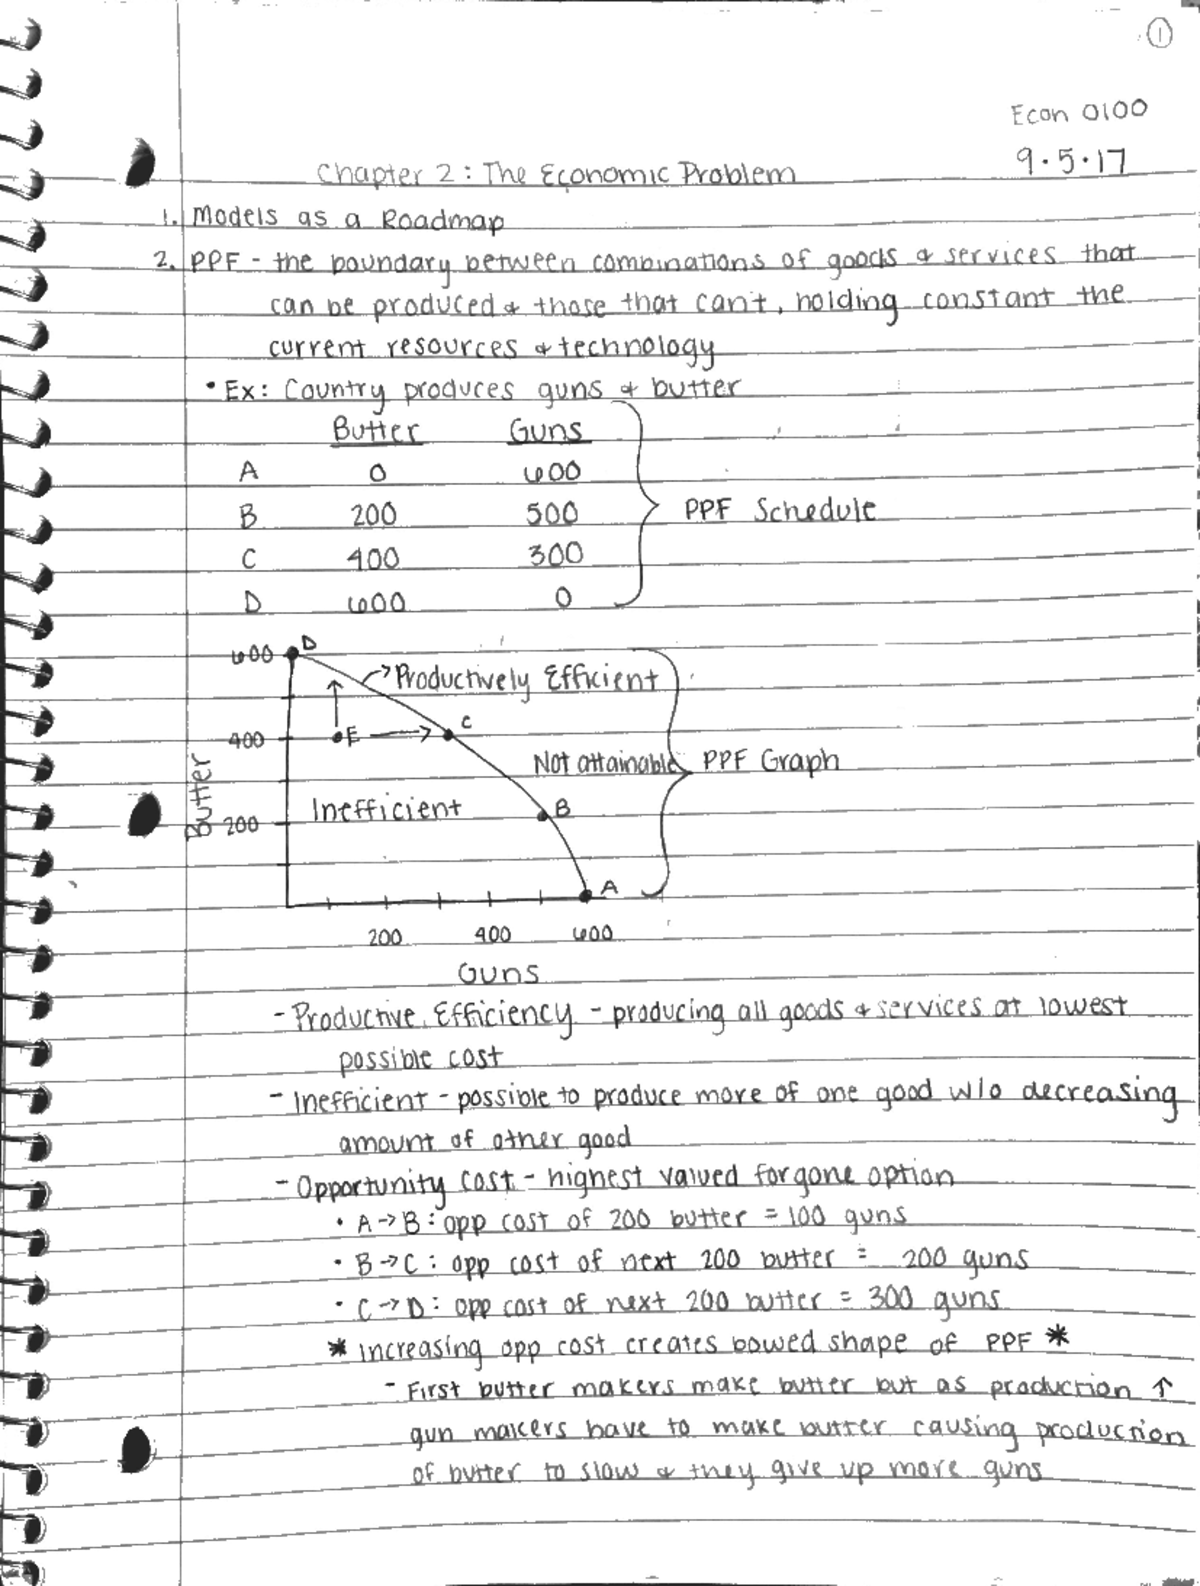 ①
Econ 0100
9.5.17
Chapter 2: The Economic Problem
1. Models as a Roadmap
2. PPF - the boundary between combinations of goods & services that
can be produced & those that can't, holding constant the
current resources & technology
• Ex: Country produces guns & butter
Butter Guns
A 0 600
B 200 500
C 400 300
D 600 0
PPF Schedule
600 D
Productively Efficient
400 E C
Not attainable
PPF Graph
Butter
Inefficient
200 B
A
200 400 600
Guns
- Productive Efficiency - producing all goods & services at lowest
possible cost
- Inefficient - possible to produce more of one good w/o decreasing
amount of other good
- Opportunity cost - highest valued forgone option
• A→B: opp cost of 200 butter = 100 guns
• B→C: opp cost of next 200 butter = 200 guns
• C→D: opp cost of next 200 butter = 300 guns
* increasing opp cost creates bowed shape of PPF *
- First butter makers make butter but as production ↑
gun makers have to make butter causing production
of butter to slow & they give up more guns